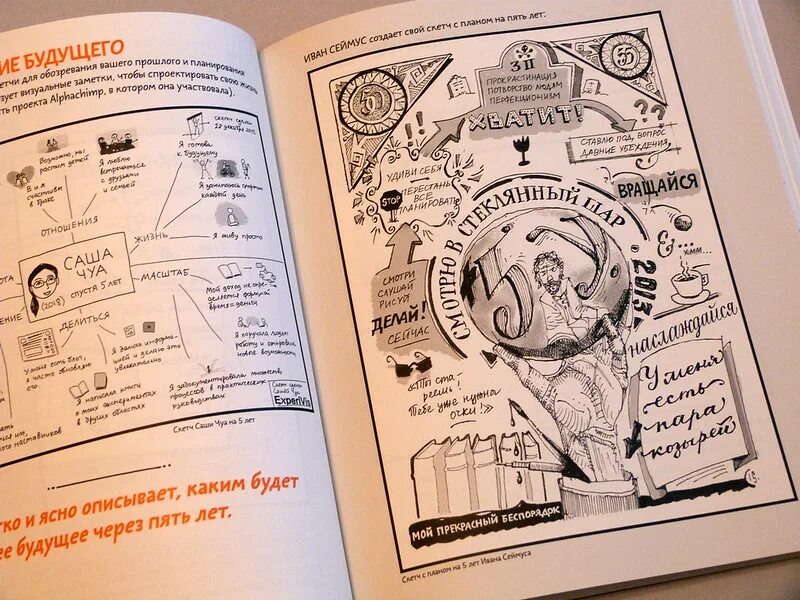 ИЕ БУДУЩЕГО
кетчи для обозревания вашего прошлого и планирования
зует визуальные заметки, чтобы спроектировать свою жизнь
сть проекта Alphachimp, в котором она участвовала).
скетч сделан
Возможно, мы
растим детей
Я люблю
встречаться
с друзьями
и семьей
Я готова
к будущему
В и я
счастливы
в браке
Я занимаюсь спортом
каждый день
ОТНОШЕНИЯ
ЖИЗНЬ
Я живу просто
САША
ЧУА
(2018) СПУСТЯ 5 ЛЕТ
МАСШТАБ
ОТА
ЕНИЕ
Мой доход не опре-
деляется формулой
время=деньги
ДЕЛИТЬСЯ
У меня есть блог,
я часто обновляю
его.
Я делаю это
увлекательно
Я поручала людям
работу и открываю
новые возможности
Я написала книгу
о моих экспериментах
в других областях
Я задокументировала множество
процессов в практических
руководствах
наставников
ExperiVis
Скетч Саши Чуа на 5 лет
тко и ясно описывает, каким будет
ее будущее через пять лет.
ИВАН СЕЙМУС создает свой скетч с планом на пять лет:
50
55
3 П
ПРОКРАСТИНАЦИЯ
ПОТВОРСТВО ЛЮДЯМ
ПЕРФЕКЦИОНИЗМ
ХВАТИТ!
!!
??
СТАВЛЮ ПОД ВОПРОС
ДАВНИЕ УБЕЖДЕНИЯ
УДИВИ СЕБЯ
STOP
ПЕРЕСТАНЬ
ВСЕ
ПЛАНИРОВАТЬ
ВРАЩАЙСЯ
СМОТРЮ В СТЕКЛЯННЫЙ ШАР
5У
2013
&... ХММ...
СМОТРИ
СЛУШАЙ
РИСУЙ
ДЕЛАЙ!
СЕЙЧАС
НАСЛАЖДАЙСЯ
«Ты ста-
реешь!
Тебе уже нужны
очки!»
У меня
есть
пара
козырей
МОЙ ПРЕКРАСНЫЙ БЕСПОРЯДОК
Скетч с планом на 5 лет Ивана Сеймуса